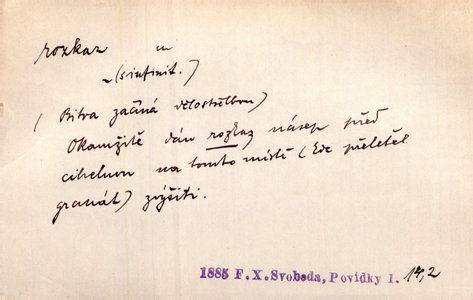 rozkaz
(s infinit.)
(Bitva začíná dělostřelbou)
Okamžitě dán rozkaz násep před
cihelnou na tomto místě (kde přeletěl
granát) zvýšiti.
1885 F.X.Svoboda, Povidky I. 14,2